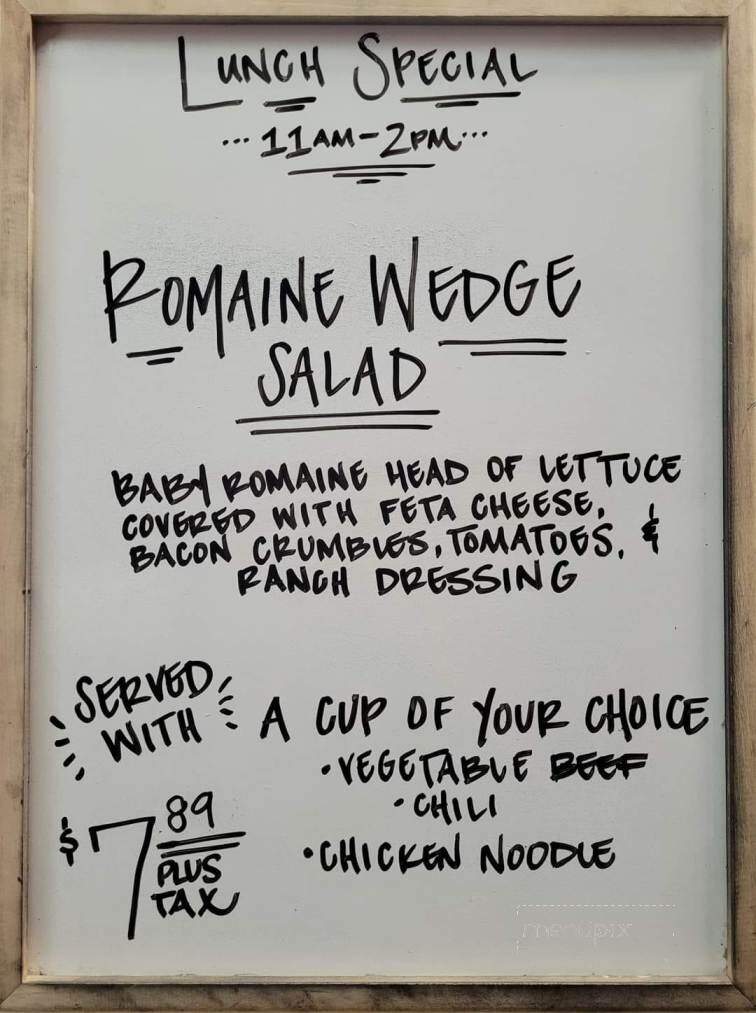 LUNCH SPECIAL
...11AM-2PM...
ROMAINE WEDGE
SALAD
BABY ROMAINE HEAD OF LETTUCE
COVERED WITH FETA CHEESE,
BACON CRUMBLES, TOMATOES, &
RANCH DRESSING
SERVED
WITH
A CUP OF YOUR CHOICE
•VEGETABLE BEEF
•CHILI
•CHICKEN NOODLE
$7 89
PLUS
TAX
menupix